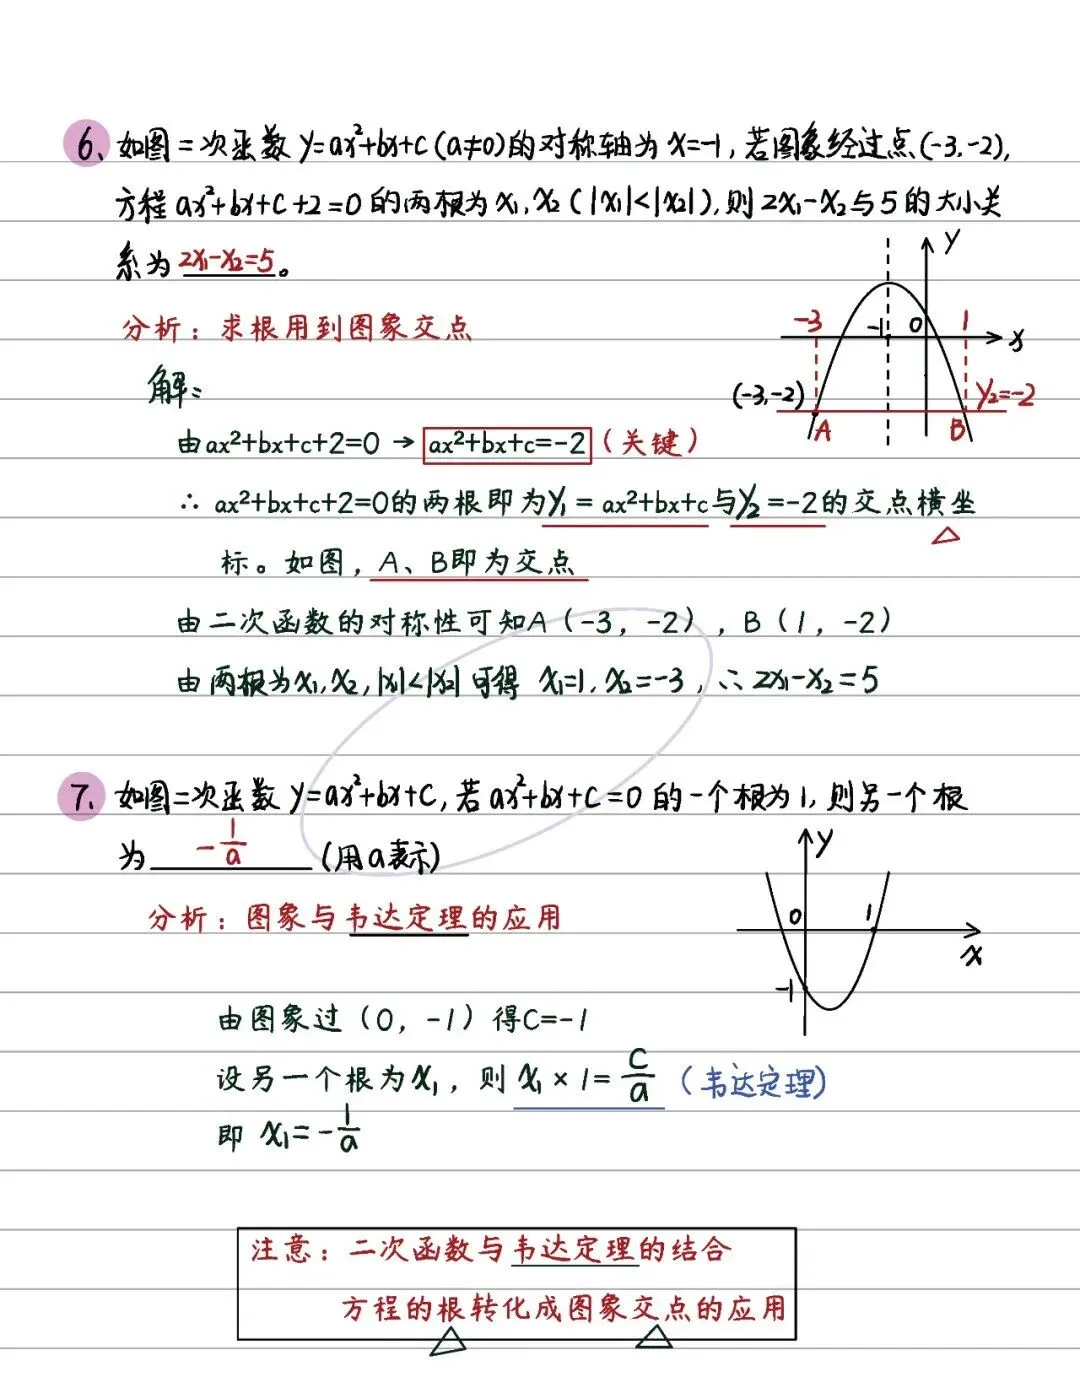 6、如图二次函数 y=ax²+bx+c (a≠0)的对称轴为 x=-1,若图象经过点(-3.-2),
方程 ax²+bx+c+2=0 的两根为 x₁,x₂ (|x₁|<|x₂|),则 2x₁-x₂与5的大小关
系为 2x₁-x₂=5。
分析:求根用到图象交点
解:
由ax²+bx+c+2=0 → ax²+bx+c=-2(关键)
∴ ax²+bx+c+2=0的两根即为y₁=ax²+bx+c与y₂=-2的交点横坐
标。如图,A、B即为交点
由二次函数的对称性可知A(-3,-2),B(1,-2)
由两根为x₁,x₂,|x₁|<|x₂| 可得 x₁=1,x₂=-3,∴2x₁-x₂=5
y
-3
-1
0
1
x
(-3,-2)
y₂=-2
A
B
7、如图二次函数 y=ax²+bx+c,若 ax²+bx+c=0 的一个根为1,则另一个根
为 -1/a (用a表示)
分析:图象与韦达定理的应用
由图象过(0,-1)得C=-1
设另一个根为x₁,则 x₁×1=c/a (韦达定理)
即 x₁=-1/a
y
0
1
x
-1
注意:二次函数与韦达定理的结合
方程的根转化成图象交点的应用